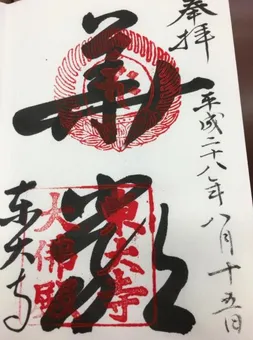 奉拝
平成二十八年八月十五日
華厳
東大寺
大佛殿
东大寺